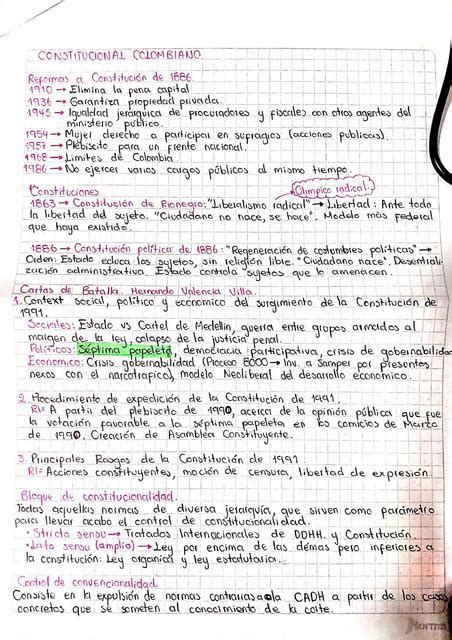 CONSTITUCIONAL COLOMBIANO.
Reformas a Constitución de 1886.
1910 → Elimina la pena capital
1936 → Garantiza propiedad privada.
1945 → Igualdad jerarquica de procuradores y fiscales con otros agentes del
ministerio público.
1954 → Mujer derecho a participar en sufragios (acciones publicas).
1957 → Plebiscito para un frente nacional.
1968 → Limites de Colombia
1986 → No ejercer varios cargos públicos al mismo tiempo.
Constituciones
Olimpico radical.
1863 → Constitución de Rionegro: "Liberalismo radical" → Libertad: Ante todo
la libertad del sujeto. "Ciudadano no nace, se hace". Modelo más federal
que haya existido.
1886 → Constitución política de 1886: "Regeneración de costumbres políticas" →
Orden: Estado educa los sujetos, sin religión libre. "Ciudadano nace". Desentrali-
zación administrativa. Estado controla sujetos que le amenacen.
Cartas de Batalla. Hernando Valencia Villa.
1. Context social, político y economico del surgimiento de la Constitución de
1991.
Sociales: Estado vs Cartel de Medellin, guerra entre grupos armados al
margen de la ley, colapso de la justicia penal.
Políticos: Séptima papeleta, democracia participativa, crisis de gobernabilidad
Economico: Crisis gobernabilidad (Proceso 8000 → Inv. a Samper por presuntos
nexos con el narcotrafico), modelo Neoliberal del desarrollo económico.
2. Procedimiento de expedición de la Constitución de 1991.
R/= A partir del plebiscito de 1990, acerca de la opinión pública que fue
la votación favorable a la séptima papeleta en los comicios de Marzo
de 1990. Creación de Asamblea Constituyente.
3. Principales Rasgos de la Constitución de 1991
R/= Acciones constituyentes, moción de censura, libertad de expresión.
Bloque de constitucionalidad.
Todas aquellas normas de diversa jerarquía, que sirven como parámetro
para llevar acabo el control de constitucionalidad.
• Stricto sensu → Tratados Internacionales de DDHH. y Constitución.
• Lato sensu (amplio) → Ley por encima de las demas pero inferiores a
la constitución: Ley organica y ley estatutaria.
Control de convencionalidad.
Consiste en la expulsión de normas contrarias a la CADH a partir de los casos
concretos que se someten al conocimiento de la corte.
Norma